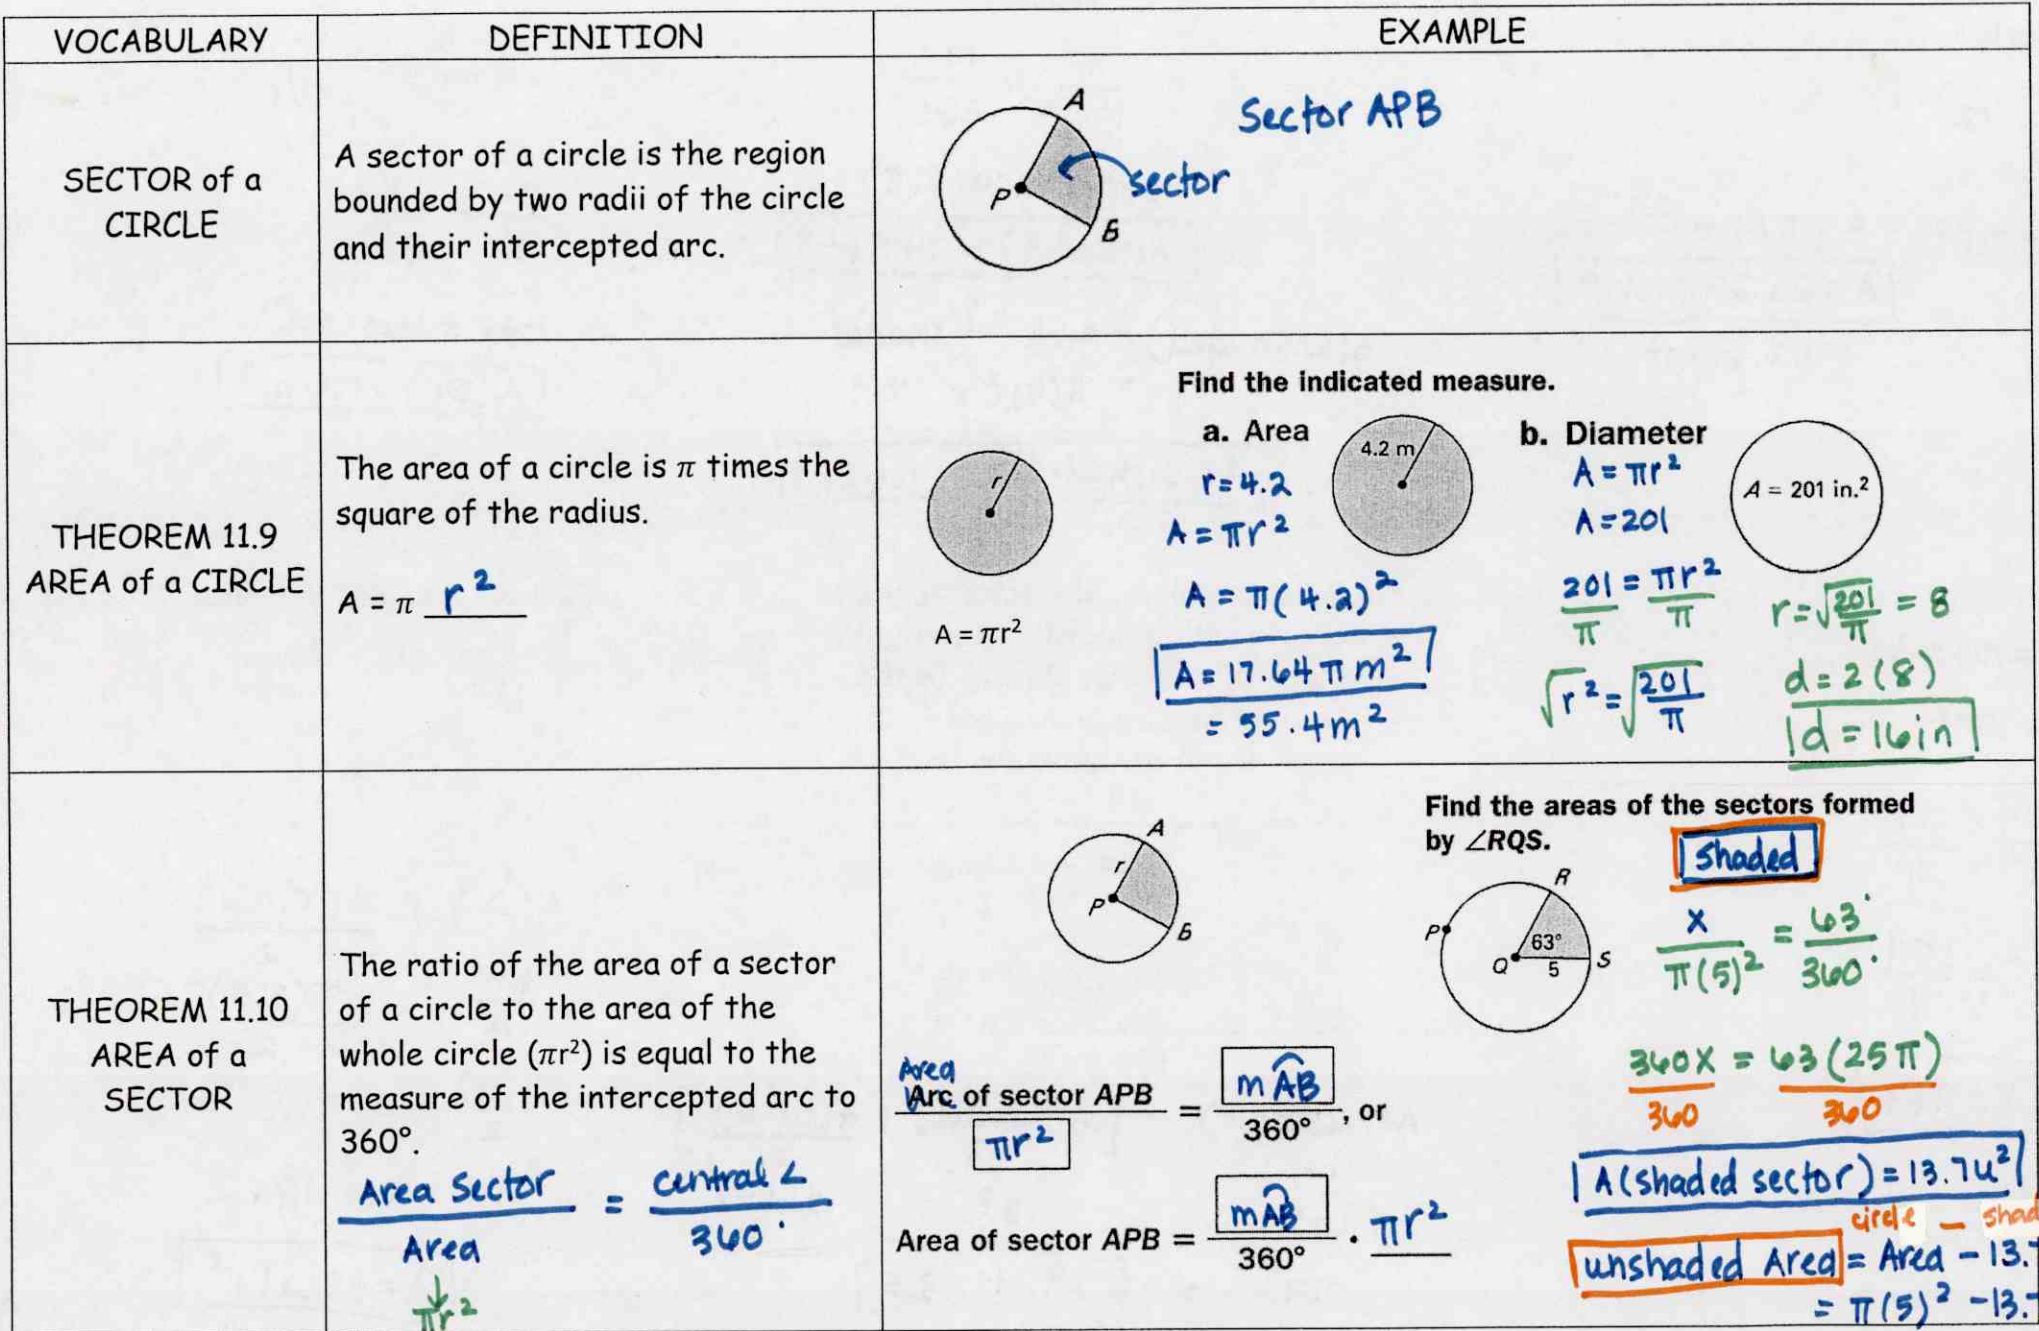 VOCABULARY
DEFINITION
EXAMPLE
SECTOR of a
CIRCLE
A sector of a circle is the region
bounded by two radii of the circle
and their intercepted arc.
A
P
B
sector
Sector APB
THEOREM 11.9
AREA of a CIRCLE
The area of a circle is π times the
square of the radius.
A = π r²
r
A = πr²
Find the indicated measure.
a. Area
4.2 m
r = 4.2
A = πr²
A = π(4.2)²
A = 17.64 π m²
= 55.4 m²
b. Diameter
A = 201 in.²
A = πr²
A = 201
201/π = πr²/π
√r² = √201/π
r = √201/π = 8
d = 2(8)
d = 16 in
THEOREM 11.10
AREA of a
SECTOR
The ratio of the area of a sector
of a circle to the area of the
whole circle (πr²) is equal to the
measure of the intercepted arc to
360°.
Area Sector / Area = central ∠ / 360°
πr²
A
r
P
B
Area
Arc of sector APB / πr² = mAB / 360°, or
Area of sector APB = mAB / 360° · πr²
Find the areas of the sectors formed
by ∠RQS.
shaded
R
P
63°
Q
5
S
x / π(5)² = 63° / 360°
360x / 360 = 63(25π) / 360
A(shaded sector) = 13.7u²
circle –
unshaded Area = Area – 13.
= π(5)² – 13.